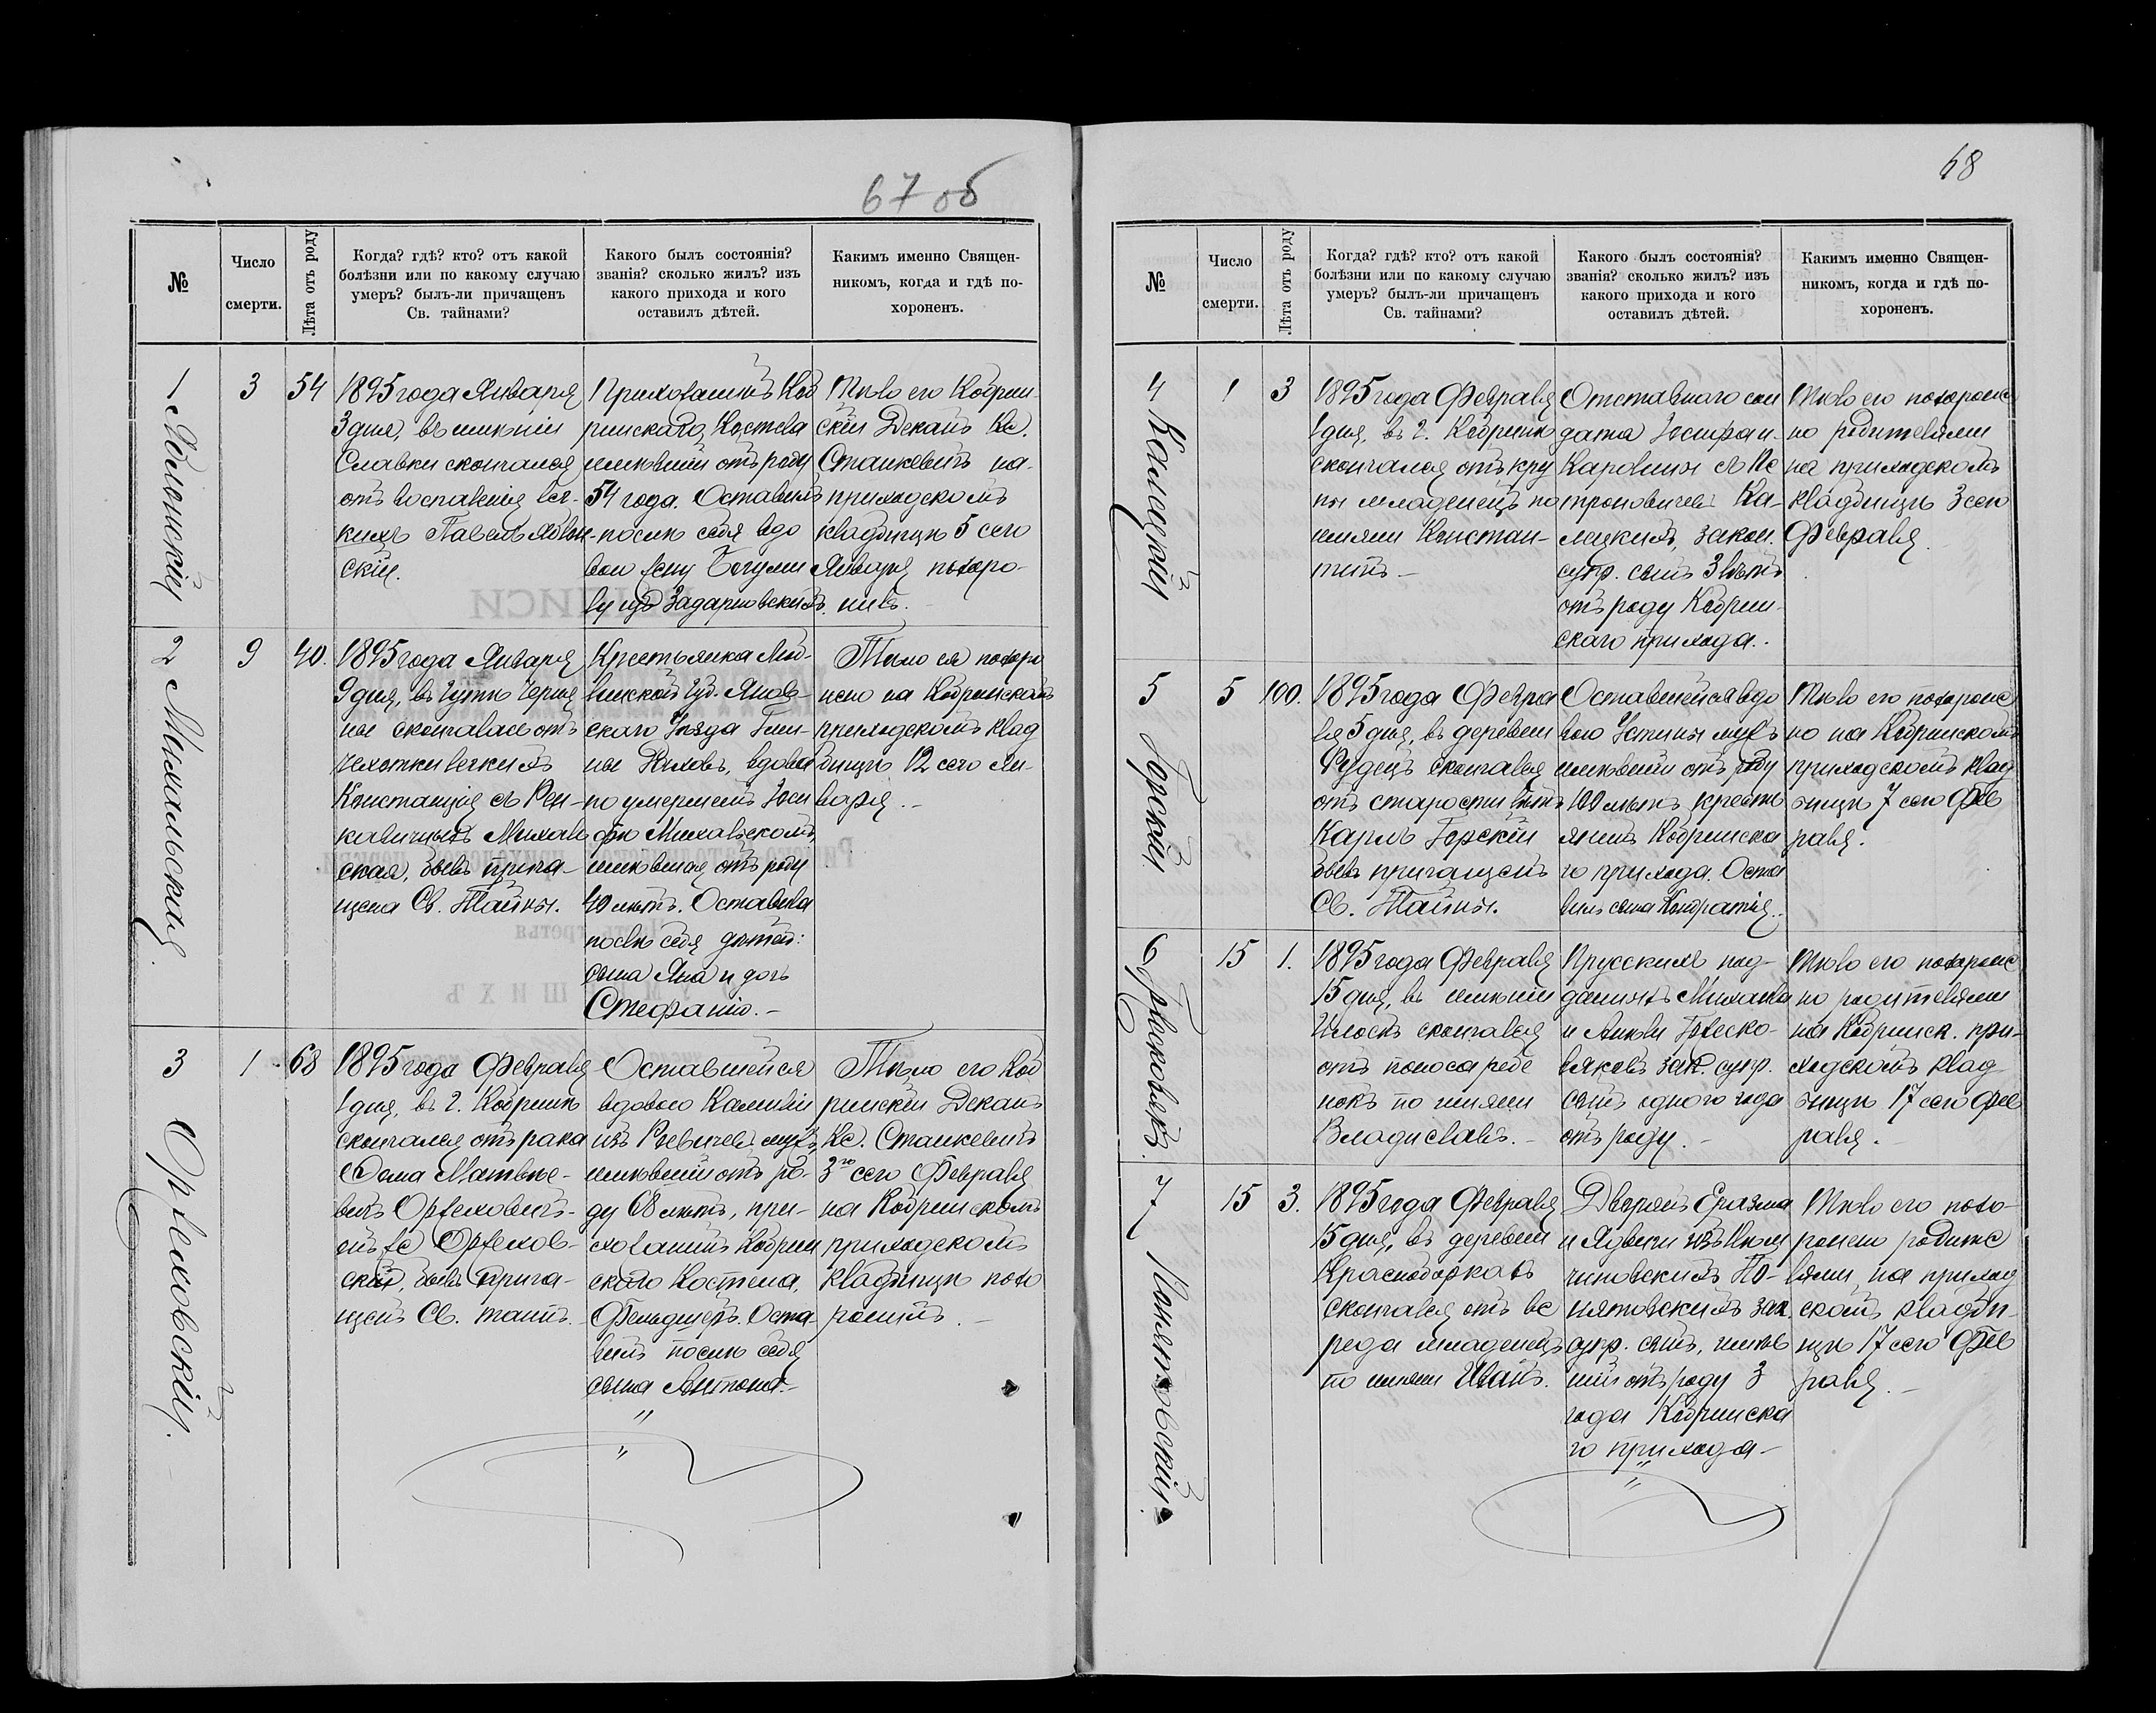 67 об
№
Число
смерти.
Лѣта отъ роду
Когда? гдѣ? кто? отъ какой
болѣзни или по какому случаю
умеръ? былъ-ли причащенъ
Св. тайнами?
Какого былъ состоянія?
званія? сколько жилъ? изъ
какого прихода и кого
оставилъ дѣтей.
Какимъ именно Священ-
никомъ, когда и гдѣ по-
хороненъ.
1
3
54
1895 года Января
3 дня, въ имѣніи
Славки скончался
отъ воспаленія лег-
кихъ Павелъ
скій.
Прихожанинъ Коб
ринскаго Костела
имѣвшій отъ роду
54 года. Оставилъ
послѣ себя вдо
вою жену Богуми
лу изъ Задарновскихъ.
Тѣло его Кобрин-
скій Деканъ Кс.
Станкевичъ на
приходскомъ
кладбищѣ 5 сего
Января похоро-
нилъ.
2 Михальская.
9
40.
1895 года Января
9 дня, въ
скончалась отъ
чахотки легкихъ
Констанція съ Рен-
кавичныхъ Михаль
ская, бывъ прича-
щена Св. Тайны.
Крестьянка
Губ. Янов-
скаго Уѣзда Гми-
ны вдова
по умершемъ Іоси
фѣ Михальскомъ,
имѣвшая отъ роду
40 лѣтъ. Оставила
послѣ себя дѣтей:
сына Яна и дочь
Стефанію. -
Тѣло ея похоро
нено на Кобринскомъ
приходскомъ клад
бищѣ 12 сего Ян-
варя. -
3 Оржеховскій.
1
68
1895 года Февраля
1 дня, въ г. Кобринѣ
скончался отъ рака
Ѳома Матвѣе-
вичъ
Оржехов-
скій, бывъ прича-
щенъ Св. таинъ.
Оставшейся
вдовою Камиліи
изъ мужъ,
имѣвшій отъ ро-
ду 68 лѣтъ, при-
хожанинъ Кобрин
скаго Костела,
Фельдшеръ. Оста
вилъ послѣ себя
сына Антона. -
"
"
Тѣло его Коб
ринскій Деканъ
Кс. Станкевичъ
3го сего Февраля
на Кобринскомъ
приходскомъ
кладбищѣ похо
ронилъ. -
68
№
Число
смерти.
Лѣта отъ роду
Когда? гдѣ? кто? отъ какой
болѣзни или по какому случаю
умеръ? былъ-ли причащенъ
Св. тайнами?
Какого былъ состоянія?
званія? сколько жилъ? изъ
какого прихода и кого
оставилъ дѣтей.
Какимъ именно Священ-
никомъ, когда и гдѣ по-
хороненъ.
4 Калецкій
1
3
1895 года Февраля
1 дня, въ г. Кобринѣ
скончался отъ кру
пы младенецъ по
имени Констан-
тинъ -
Отставного сол
дата
Каролины съ Пе
троновичевъ Ка-
лецкихъ, закон.
супр. сынъ 3 лѣтъ
отъ роду Кобрин-
скаго прихода. -
Тѣло его похороне
но родителями
на приходскомъ
кладбищѣ 3 сего
Февраля.
5 Горскій
5
100.
1895 года Февра
ля 5 дня, въ деревни
скончался
отъ старости лѣтъ
Карлъ Горскій
бывъ причащенъ
Св. Тайны.
Оставшейся вдо
вою Устины мужъ
имѣвшій отъ роду
100 лѣтъ, крестья
нинъ Кобринска
го прихода. Оста
вилъ сына Кондратія.
Тѣло его похороне
но на Кобринскомъ
приходскомъ клад
бищѣ 7 сего Фев
раля.
6 Гржесковякъ.
15
1.
1895 года Февраля
15 дня, въ имѣніи
Илоскъ скончался
отъ поноса ребе
нокъ по имени
Владиславъ. -
Прусскихъ под-
данныхъ Михаила
и Гржеско-
вяковъ зак. супр.
сынъ одного года
отъ роду. -
Тѣло его похороне
но родителями
на Кобринск. при-
ходскомъ клад
бищѣ 17 сего Фев
раля. -
7 Понятовскій.
15
3.
1895 года Февраля
15 дня, въ деревни
скончался отъ ве
реда младенецъ
по имени Иванъ.
Дворянъ Еразма
и Ядвиги изъ
По-
нятовскихъ зак.
супр. сынъ, имѣв
шій отъ роду 3
года Кобринска
го прихода -
"
Тѣло его похо-
ронено родите
лями на приход
скомъ кладби-
щѣ 17 сего Фев
раля. -